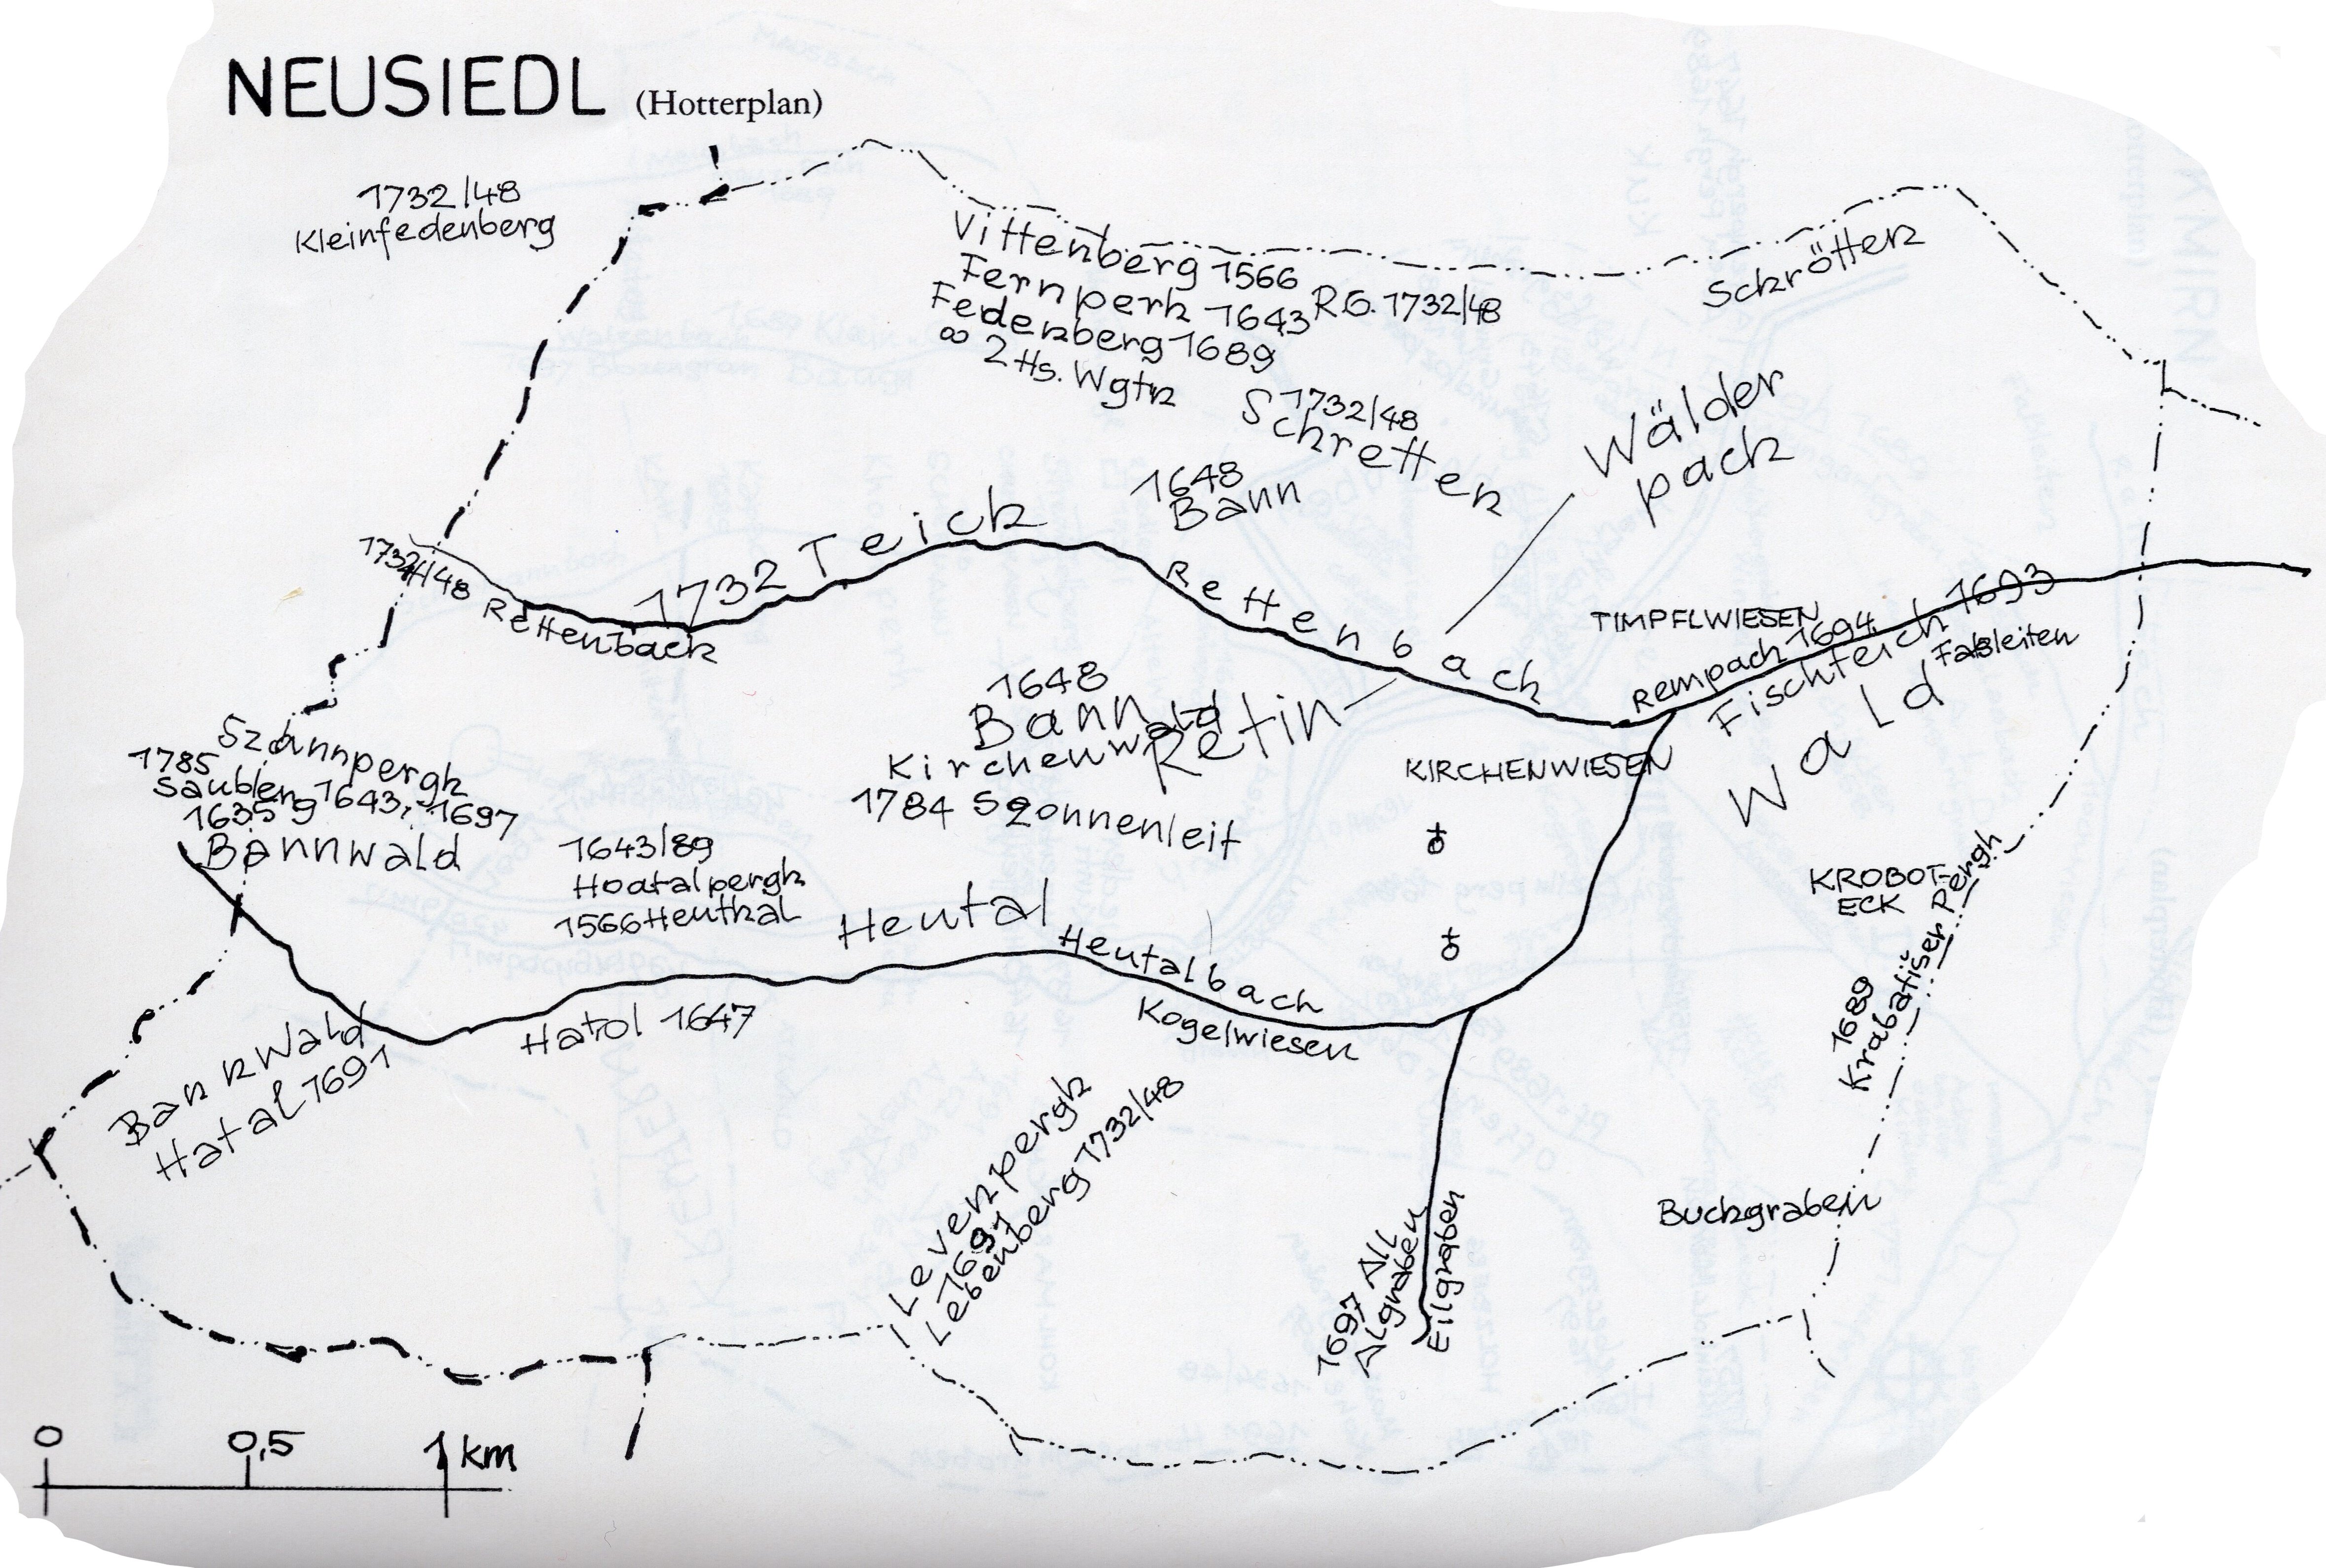 NEUSIEDL (Hotterplan)
1732/48
Kleinfedenberg
Vittenberg 1566
Fernperk 1643 R.G. 1732/48
Federberg 1689
∞ 2 Hs. Wgtn
Schrötten
1732/48
Schretten
1648
Bann
Wälder
pach
1732/48
Rettenbach
1732 Teich
Rettenbach
TIMPFLWIESEN
Rempach 1694
Fischteich 1693
Faßleiten
Wald
1648
Bann
Kirchenwald
Retin
1784 Sonnenleit
KIRCHENWIESEN
1785
Saubleng 1643, 1697
1635
Bannwald
1643/89
Hoatalpergh
1566 Heuthal
Heutal
Heutalbach
Kogelwiesen
Hatol 1647
KROBOT-
ECK
1689
Krabatiser Pergh
Bannwald
Hatal 1691
Levenpergh
1697
Lebenberg 1732/48
1697 All
Algraben
Eilgraben
Buchgraben
0 0,5 1 km